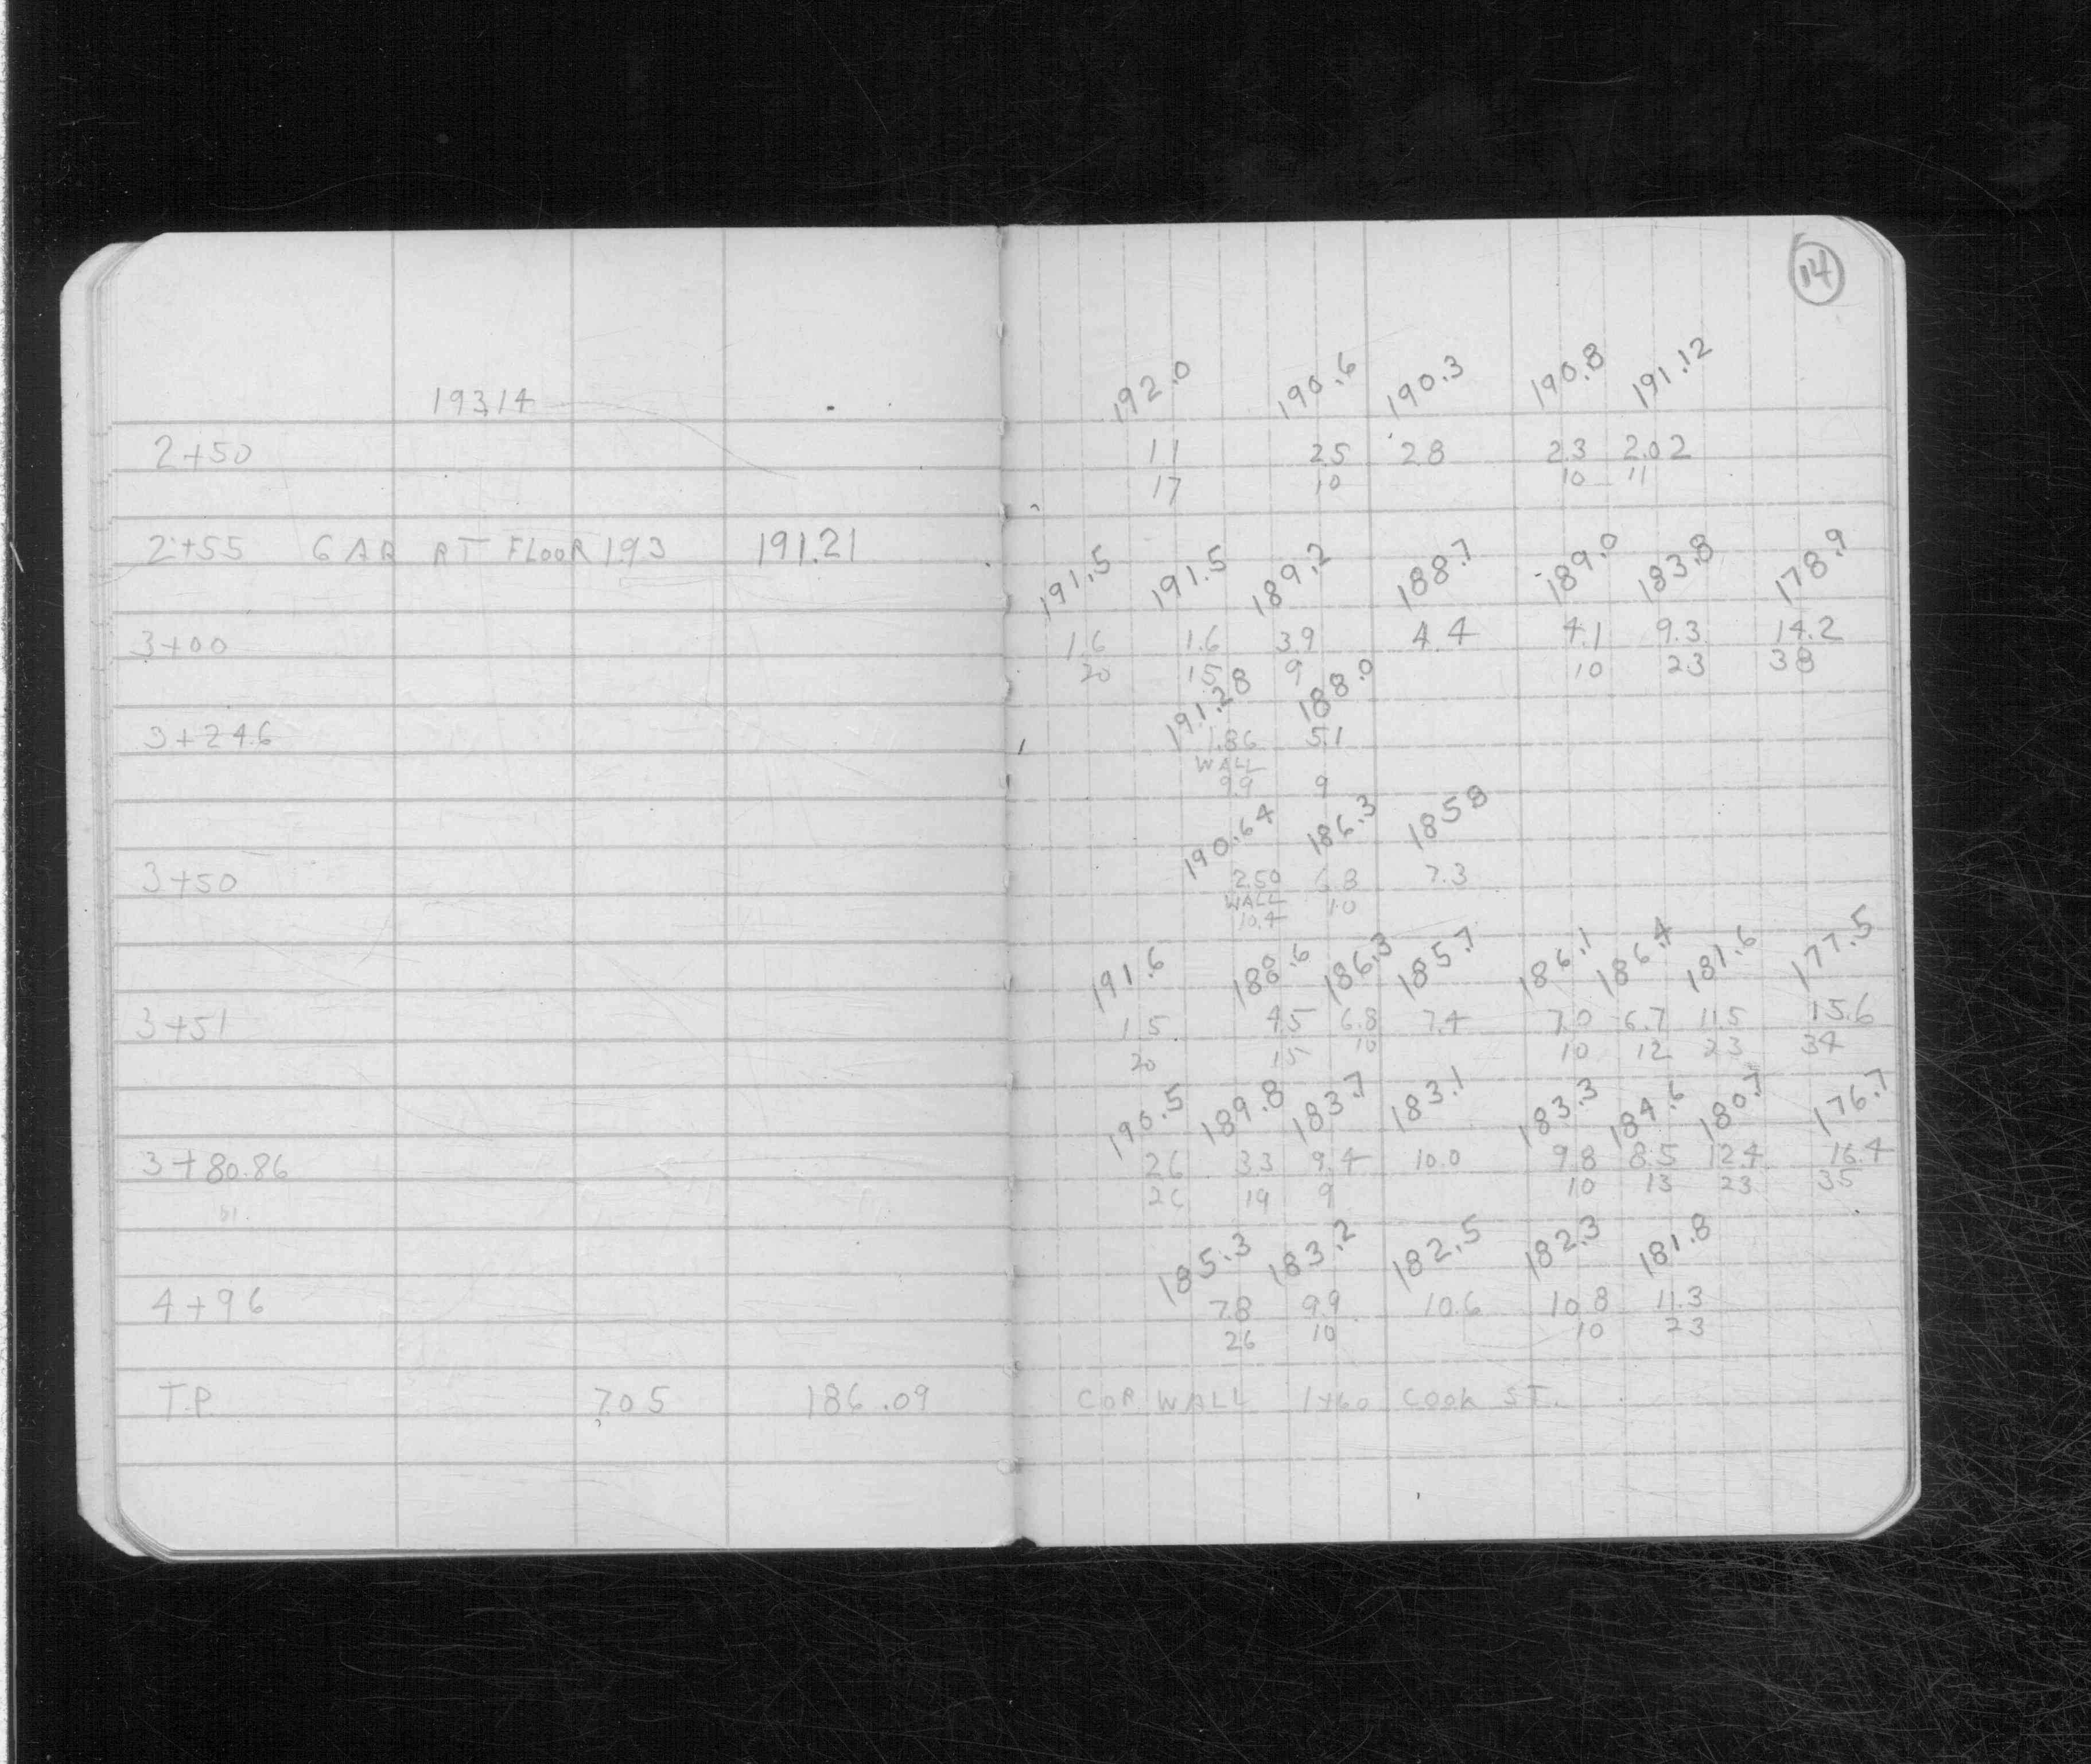 14
19314
192.0 190.6 190.3 190.8 191.12
2+50 11 25 28 23 2.02
17 10 10 11
2+55 GAR RT FLOOR 193 191.21
191.5 191.5 189.2 188.7 189.0 183.8 178.9
3+00 1.6 1.6 39 4.4 4.1 9.3 14.2
20 15 9 10 23 38
191.28 188.0
3+24.6 1.86 51
WALL
99 9
190.64 186.3 1858
3+50 250 68 7.3
WALL 10
10.4
191.6 188.6 186.3 185.7 186.1 186.4 181.6 177.5
3+51 15 45 6.8 7.4 7.0 6.7 11.5 15.6
20 15 10 10 12 23 34
190.5 189.8 183.7 183.1 183.3 184.6 180.7 176.7
3+80.86 26 33 9.4 10.0 98 8.5 124 16.4
26 19 9 10 13 23 35
185.3 183.2 182.5 182.3 181.8
4+96 78 99 10.6 10.8 11.3
26 10 10 23
T.P. 7.05 186.09 COR WALL 1+60 COOK ST.